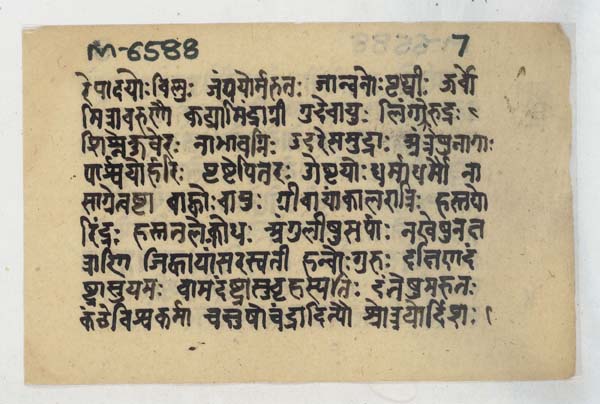 M-6588 7
रेपादयोः विष्णुः जंघयोर्मरुतः जान्वनोः पृथ्वी ऊर्वो
मित्रावरुणौ कट्यामिंद्राग्नी गुदेवायुः लिंगेरुद्रः
शिश्नेकुवेरः नाभावग्निः उदरेसमुद्राः अंत्रेषुनागाः
पार्श्वयोर्हरिः पृष्टेपितरः ओष्टयोःधर्माधर्मौ ना
साग्रेत्वष्टा बाह्वोःवायुः ग्रीवायांकालरात्रिः हस्तयो
रिंद्रः हस्ततलेक्रोधः अंगुलीषुसर्पाः नखेषुनक्ष
त्राणि जिह्वायांसरस्वती हन्वोःगुरुः दक्षिणदं
ष्ट्रासुयमः वामदंष्ट्रासुबृहस्पतिः दंतेषुमरुतः
कंठेविश्वकर्मा चक्षुषोचंद्रादित्यौ श्रोत्रयोर्दिशः